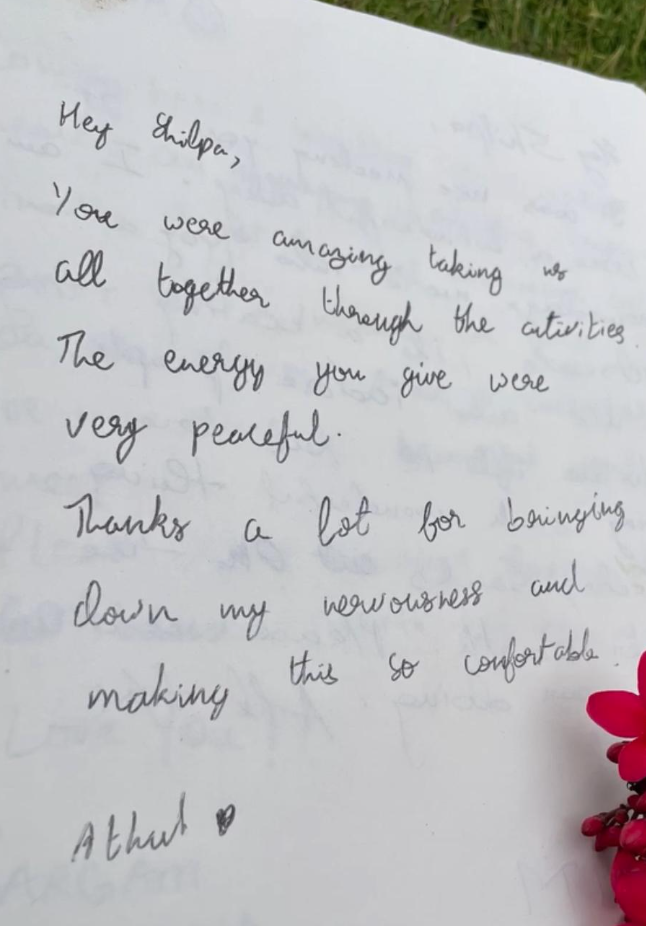 Hey Shilpa,
You were amazing taking us
all together through the activities.
The energy you give were
very peaceful.
Thanks a lot for bringing
down my nervousness and
making this so confortable.
Athul ♥